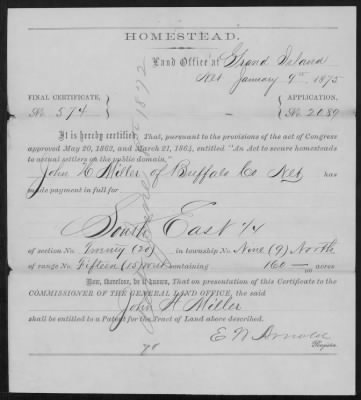 HOMESTEAD.
Land Office at Grand Island
Neb January 9th 1875
FINAL CERTIFICATE, APPLICATION,
No. 574 No. 2089
It is hereby certified, That, pursuant to the provisions of the act of Congress
approved May 20, 1862, and March 21, 1864, entitled "An Act to secure homesteads
to actual settlers on the public domain,"
John H Miller of Buffalo Co Neb has
made payment in full for
South East 1/4
of section No. Twenty (20) in township No. Nine (9) North
of range No. Fifteen (15) West containing 160 acres
Now, therefore, be it known, That on presentation of this Certificate to the
COMMISSIONER OF THE GENERAL LAND OFFICE, the said
John H Miller
shall be entitled to a Patent for the Tract of Land above described.
E W Arnold
Register.